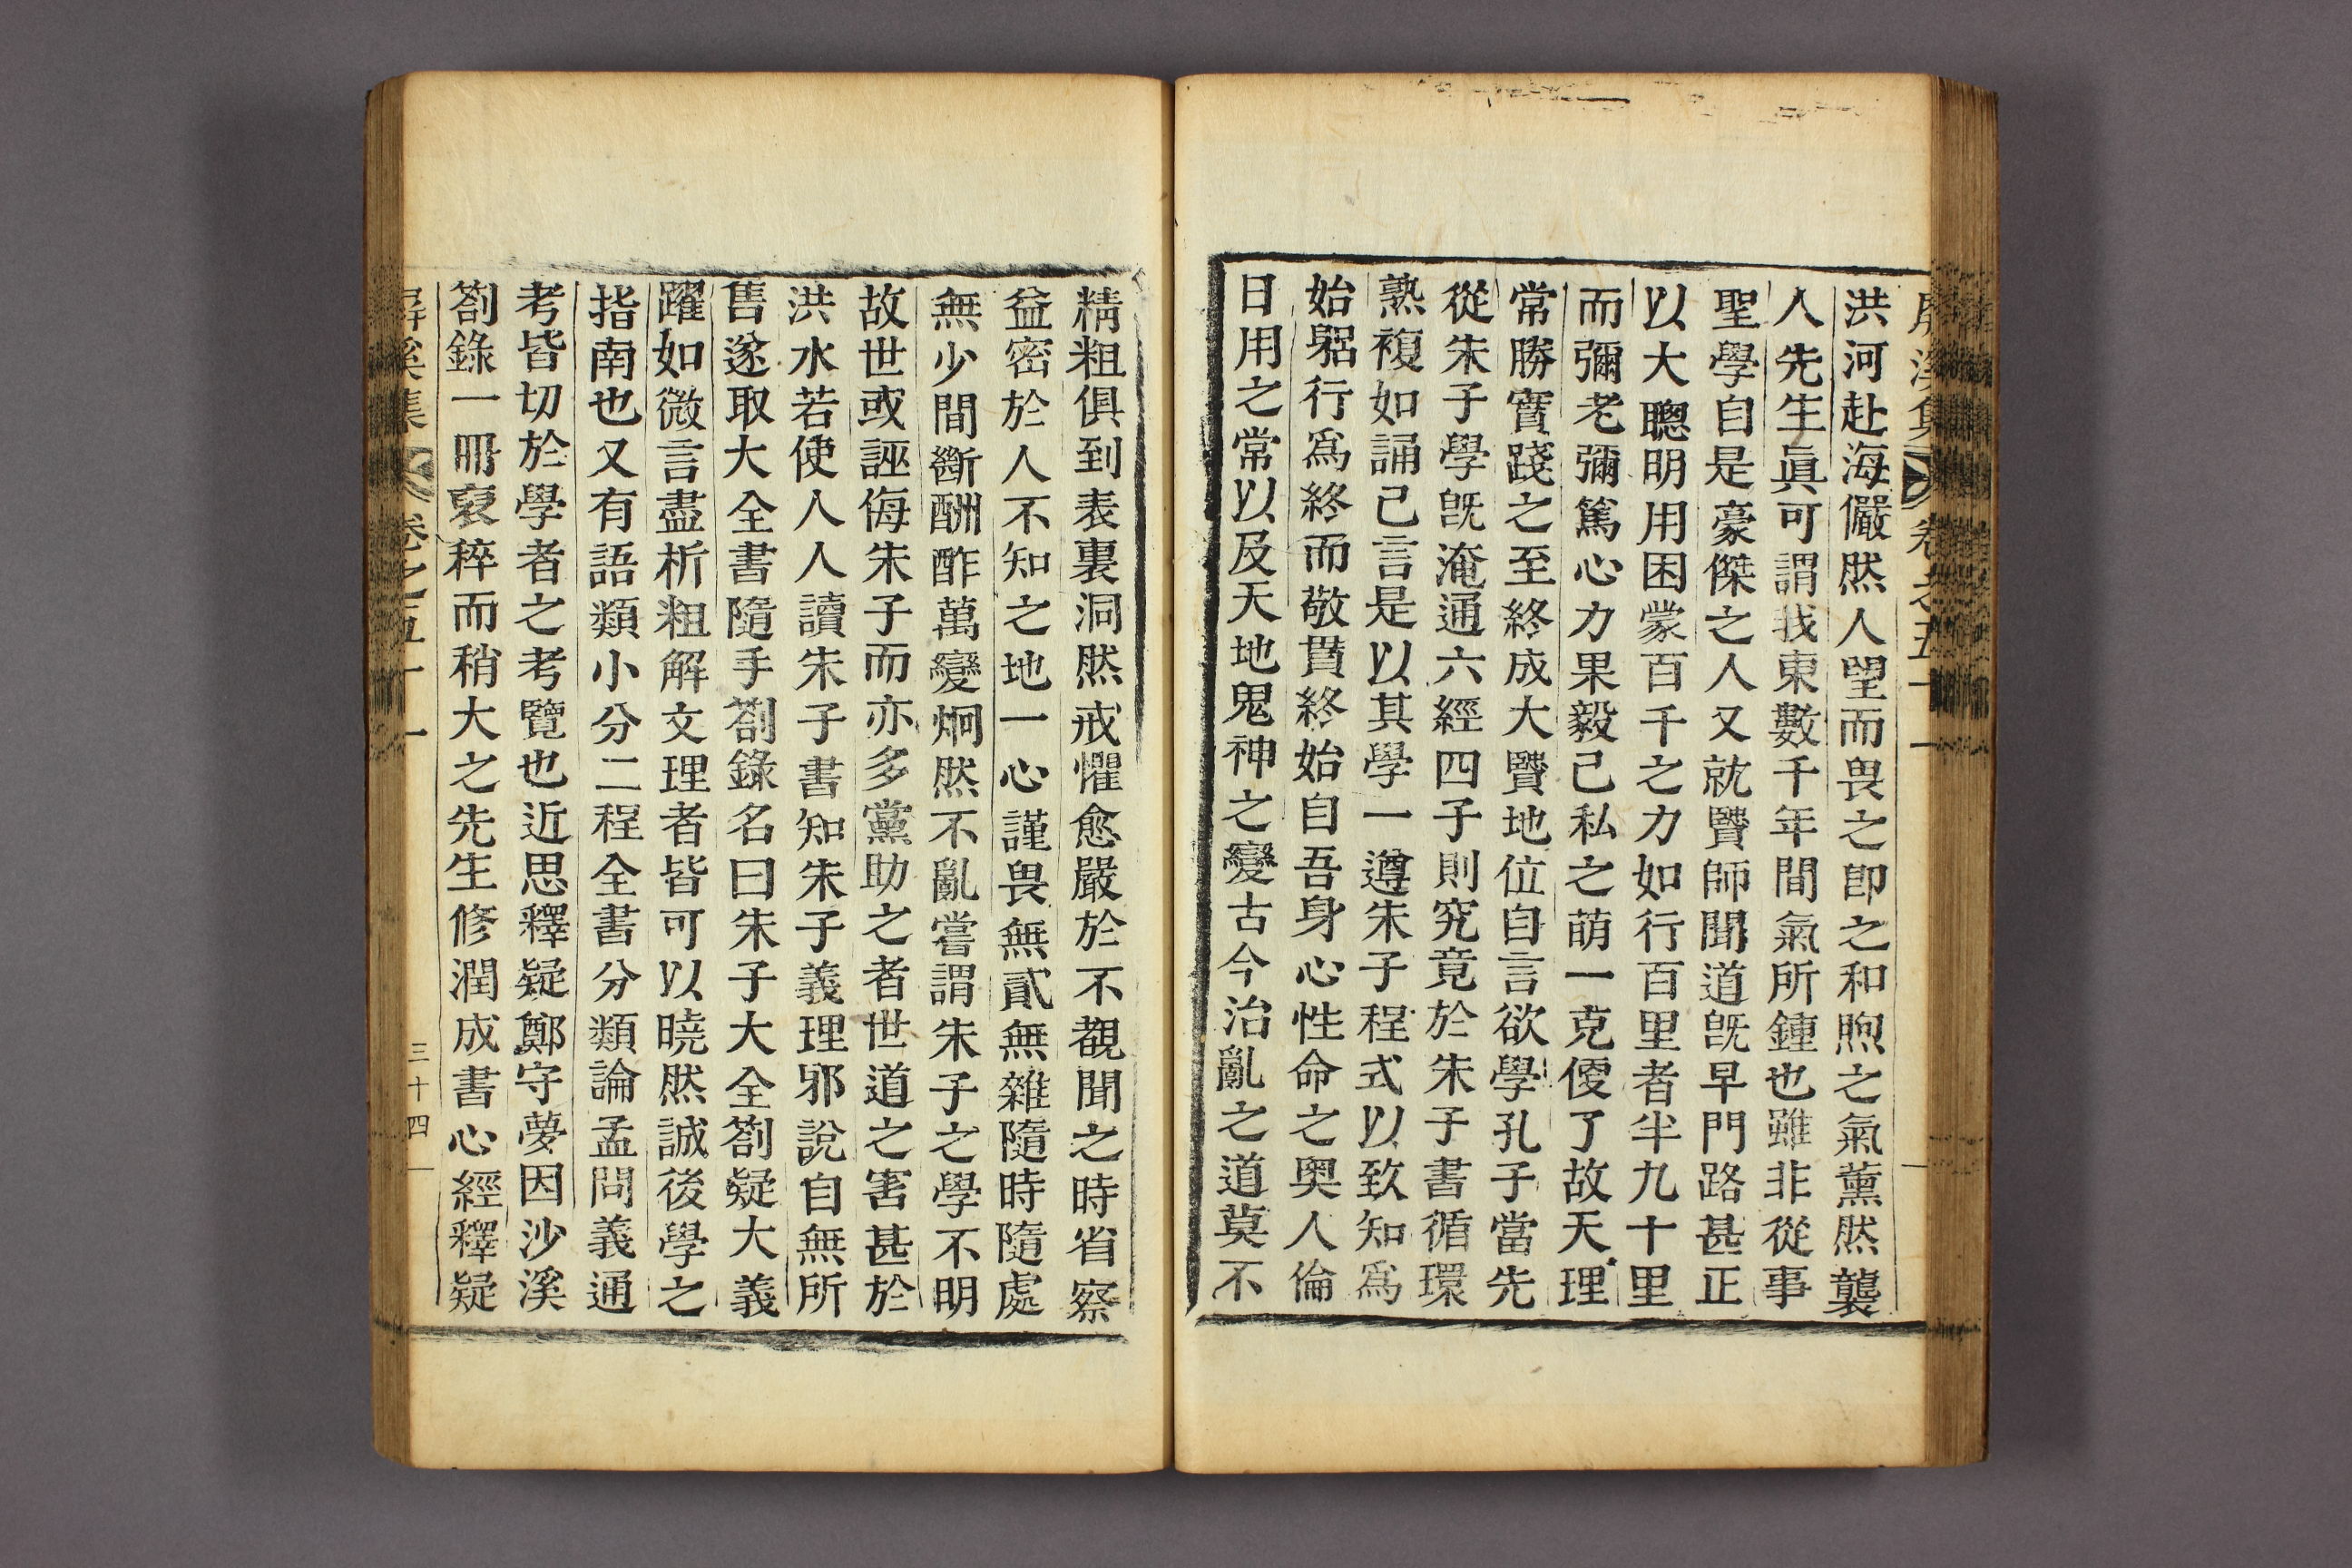 屏溪集 卷之五十一
洪河赴海儼然人望而畏之卽之和煦之氣薰然襲
人先生眞可謂我東數千年間氣所鍾也雖非從事
聖學自是豪傑之人又就賢師聞道旣早門路甚正
以大聰明用困蒙百千之力如行百里者半九十里
而彌老彌篤心力果毅己私之萌一克便了故天理
常勝實踐之至終成大賢地位自言欲學孔子當先
從朱子學旣淹通六經四子則究竟於朱子書循環
熟複如誦己言是以其學一遵朱子程式以致知爲
始躬行爲終而敬貫終始自吾身心性命之奧人倫
日用之常以及天地鬼神之變古今治亂之道莫不
精粗俱到表裏洞然戒懼愈嚴於不覩聞之時省察
益密於人不知之地一心謹畏無貳無雜隨時隨處
無少間斷酬酢萬變炯然不亂嘗謂朱子之學不明
故世或誣侮朱子而亦多黨助之者世道之害甚於
洪水若使人人讀朱子書知朱子義理邪說自無所
售遂取大全書隨手箚錄名曰朱子大全箚疑大義
躍如微言盡析粗解文理者皆可以曉然誠後學之
指南也又有語類小分二程全書分類論孟問義通
考皆切於學者之考覽也近思釋疑鄭守夢因沙溪
箚錄一冊裒稡而稍大之先生修潤成書心經釋疑
屏溪集 卷之五十一 三十四